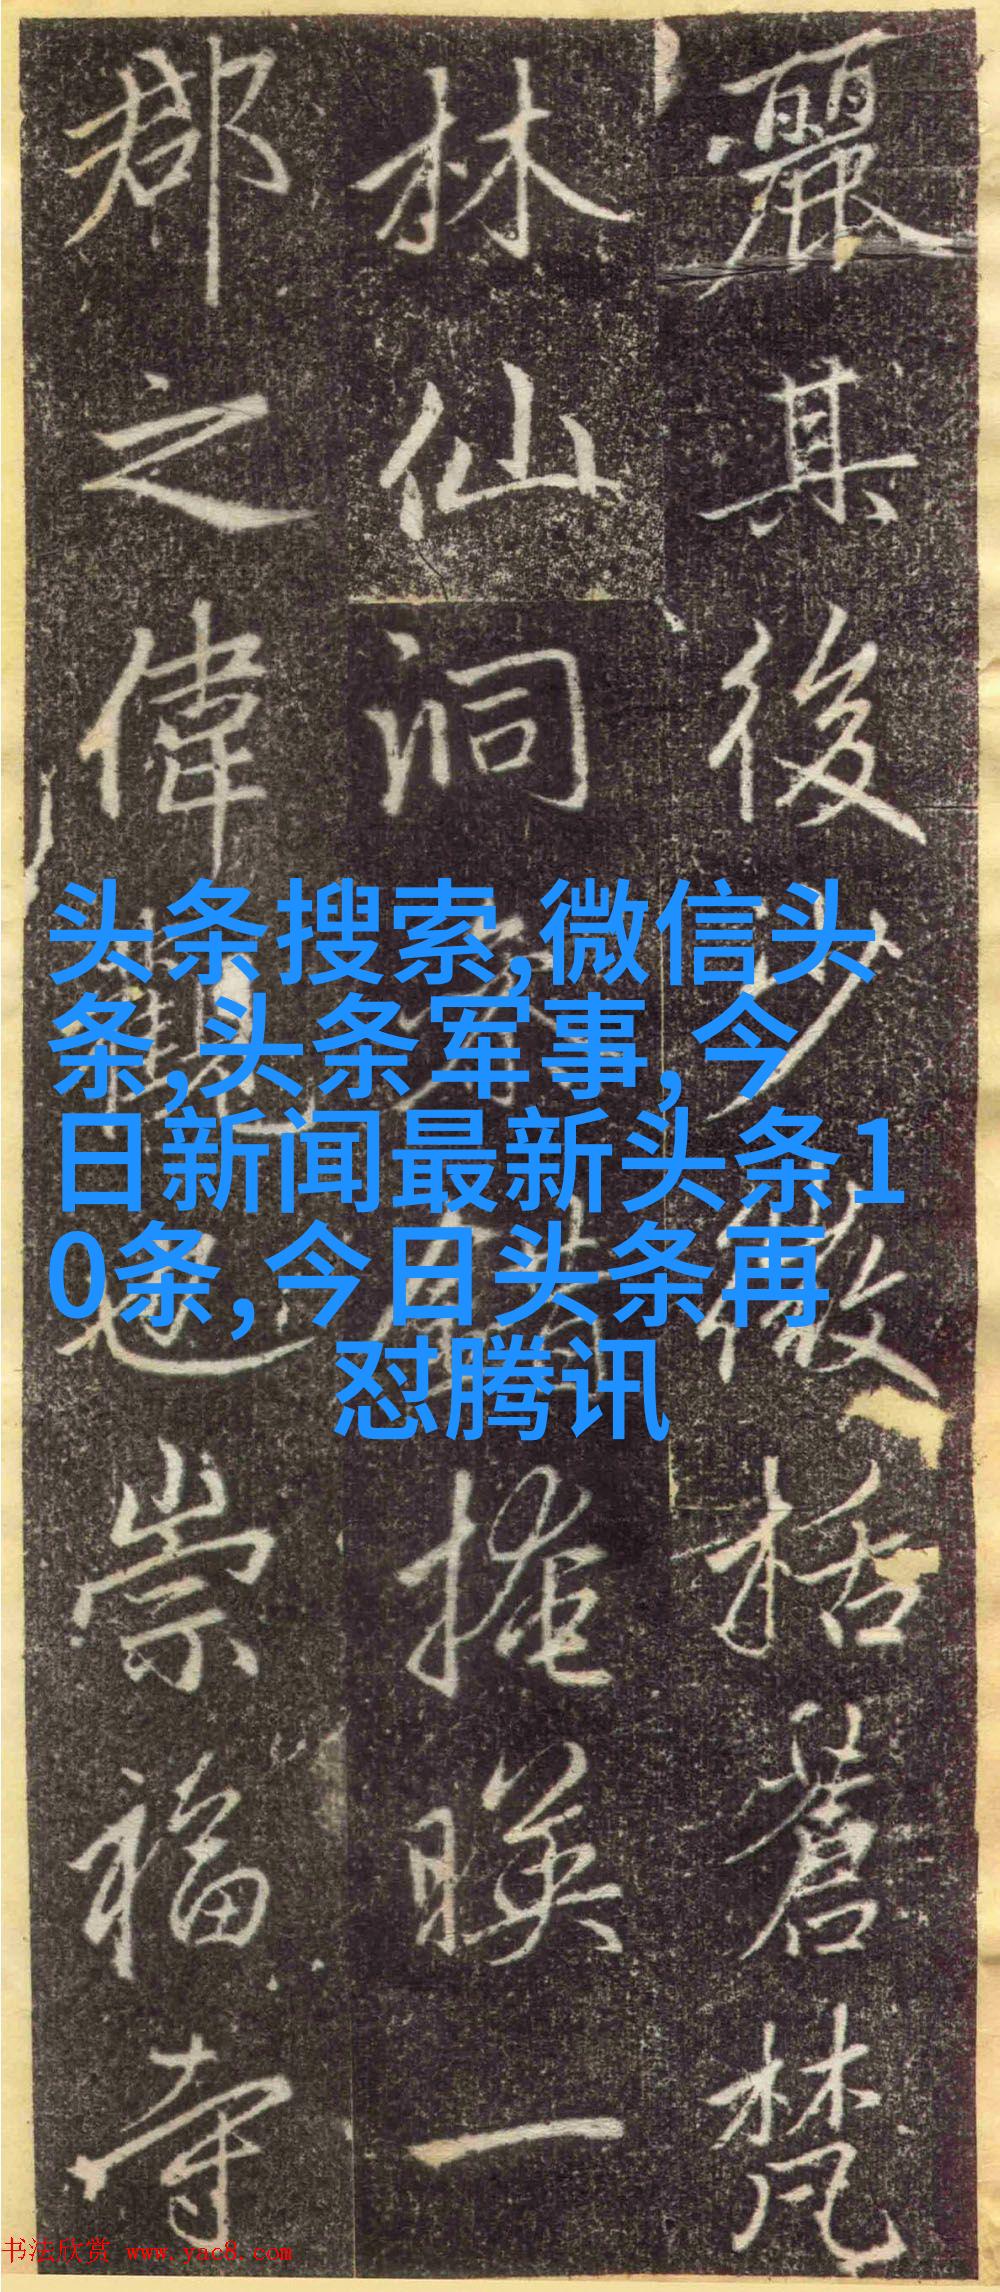 麗其後微括蒼梵
林仙洞掩暎一
郡之偉觀也崇福寺
头条搜索,微信头
条,头条军事, 今
日新闻最新头条1
0条, 今日头条再
怼腾讯
书法欣赏 www.yac8.com